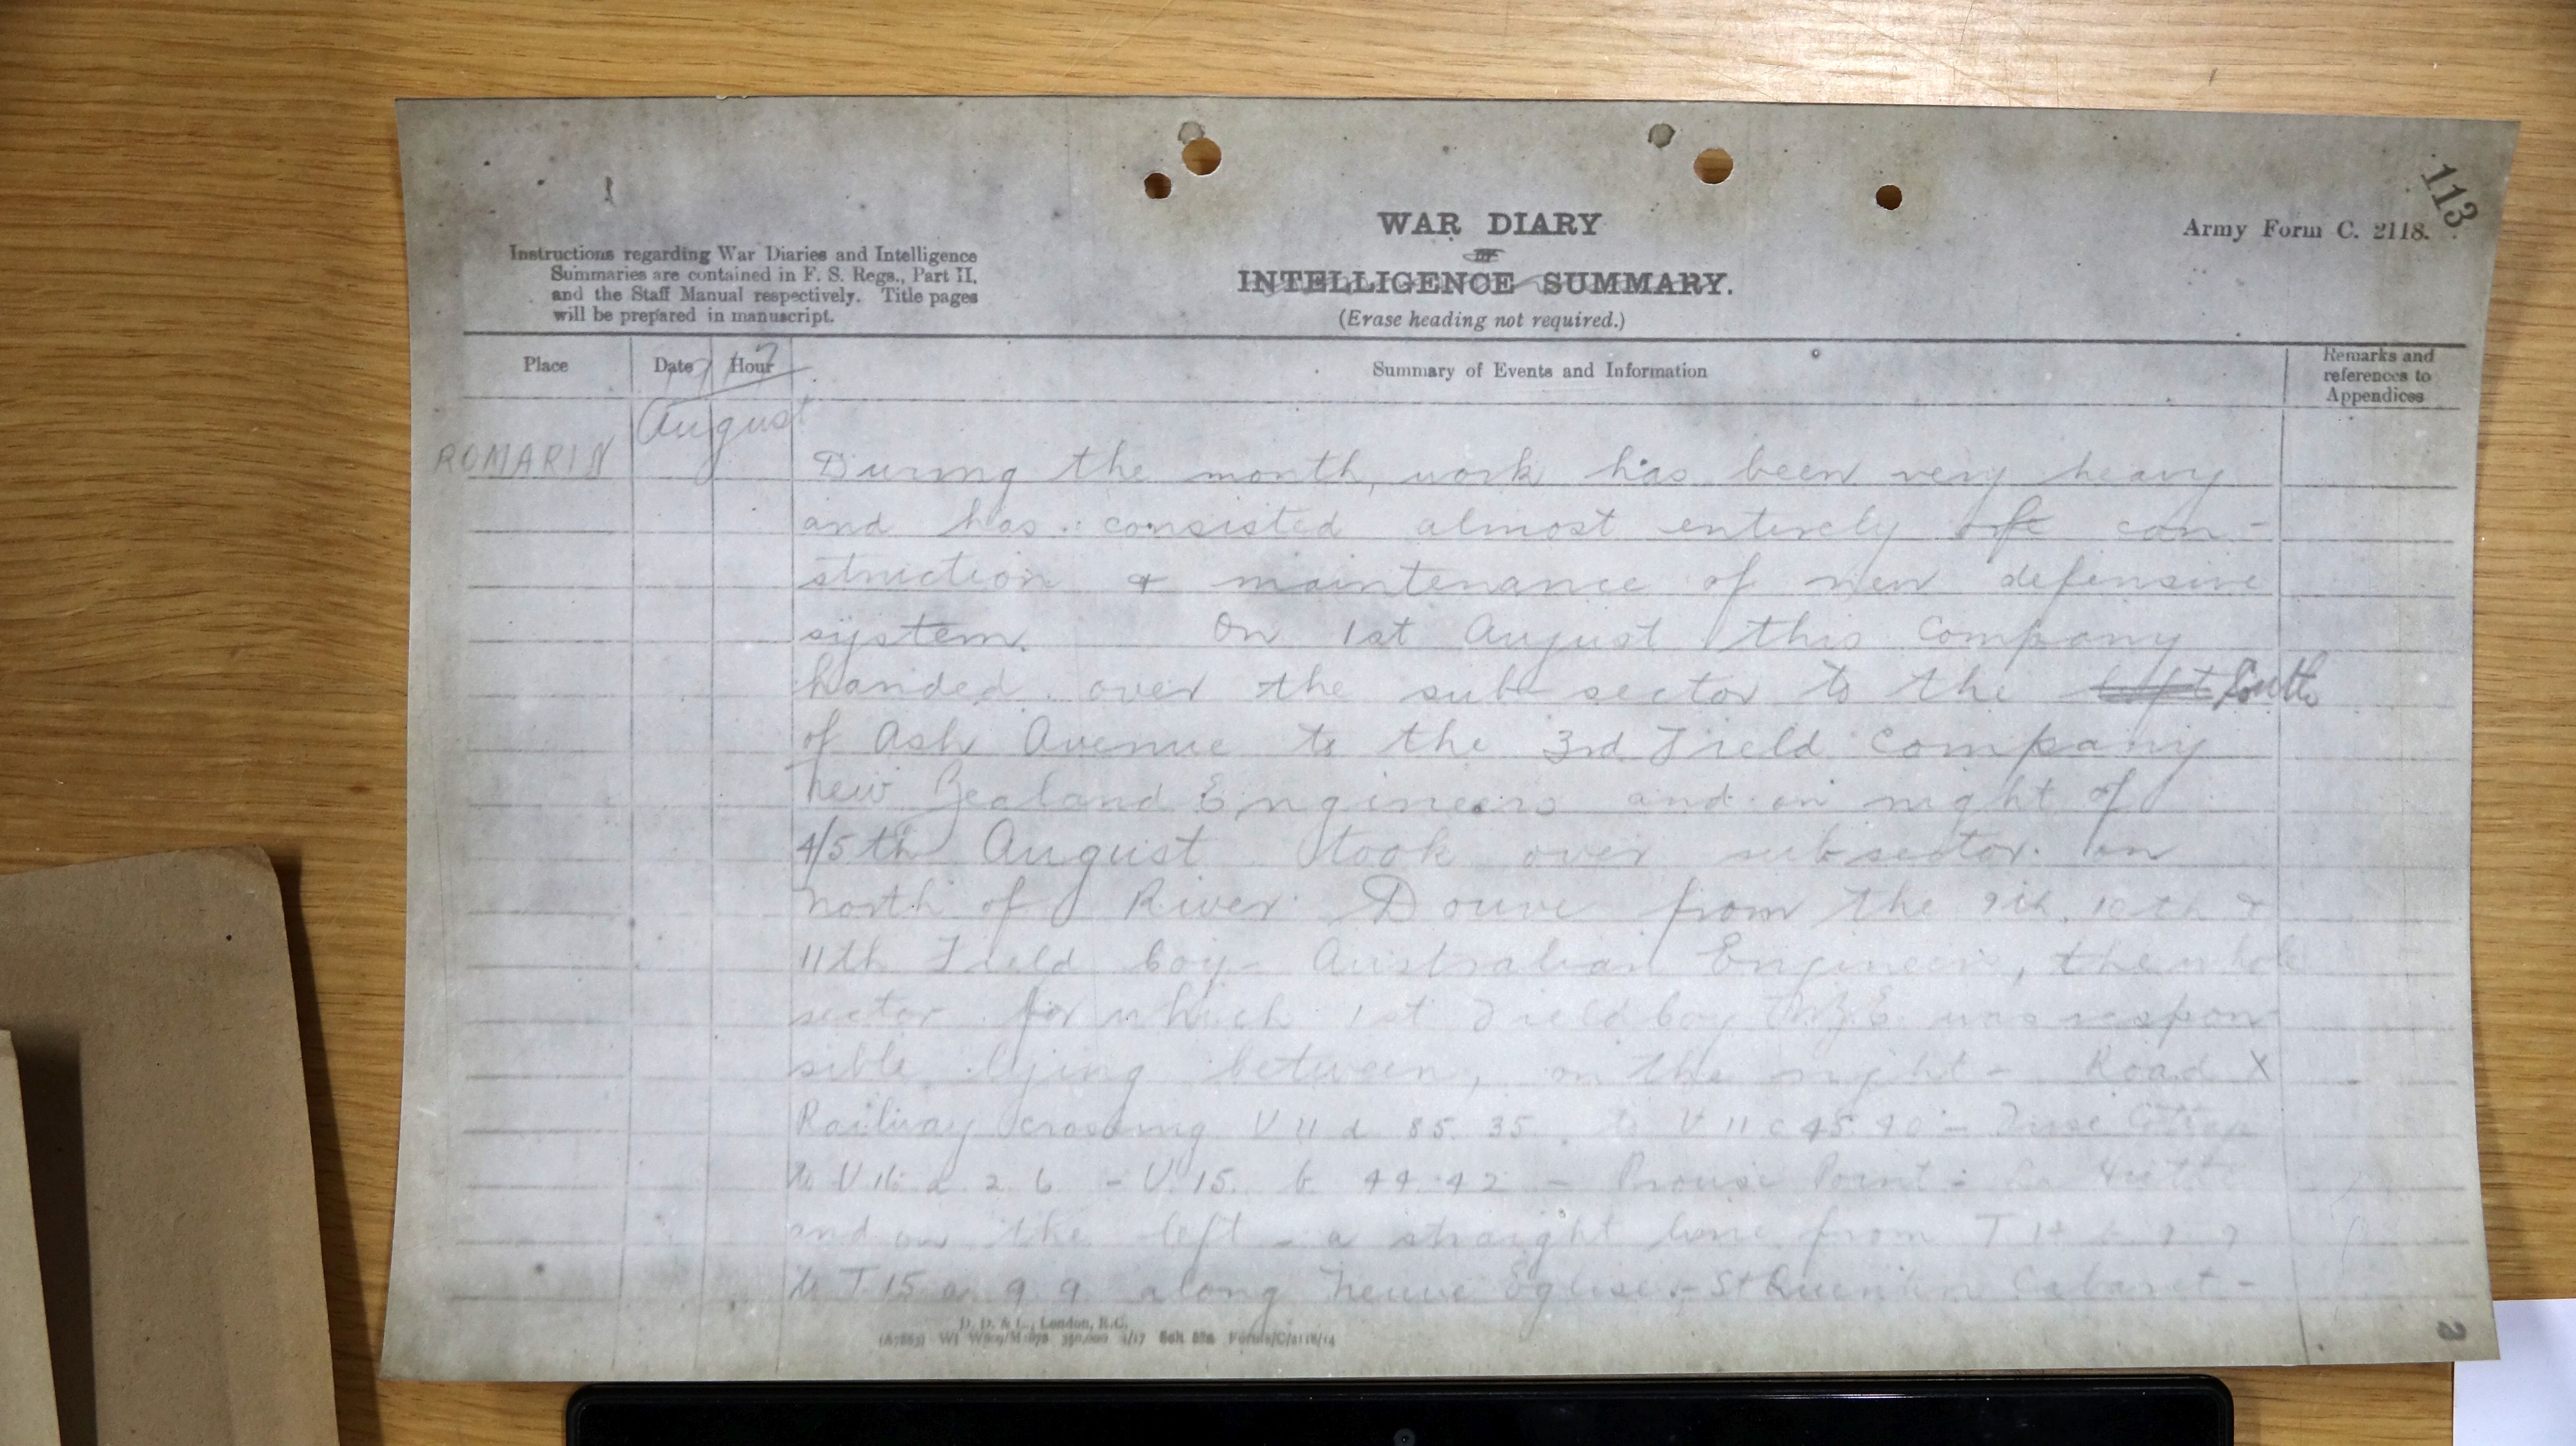 113
Army Form C. 2118.
WAR DIARY
or
INTELLIGENCE SUMMARY.
(Erase heading not required.)
Instructions regarding War Diaries and Intelligence
Summaries are contained in F. S. Regs., Part II,
and the Staff Manual respectively. Title pages
will be prepared in manuscript.
Place
Date
Hour
Summary of Events and Information
Remarks and
references to
Appendices
August
ROMARIN
During the month, work has been very heavy
and has consisted almost entirely of con-
struction & maintenance of new defensive
system. On 1st August this Company
handed over the sub sector to the South
of Ash Avenue to the 3rd Field Company
New Zealand Engineers and on night of
4/5th August took over subsector on
north of River Douve from the 9th, 10th &
11th Field Coy- Australian Engineers, the whole
sector for which 1st Field Coy N.Z.E. was respon
sible lying between, on the right - Road X
Railway crossing U 11 d 85. 35. to U 11 c 45 90 -
to U 16 a 2 6 - U. 15. b 44.42 - Prowse Point - La Hutte
and on the left - a straight line from T 14
to T 15 a 9 9 along Neuve Eglise - St Quentin Cabaret -
D. D. & L., London, E.C.
3